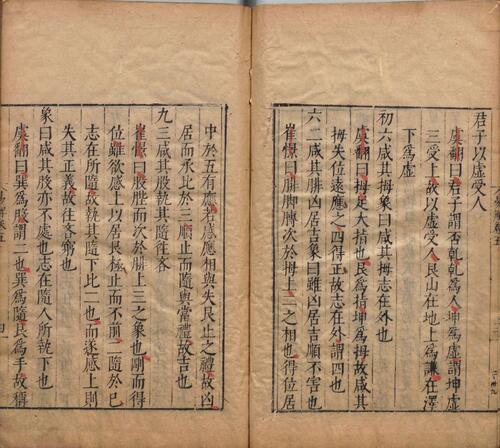 君子以虛受人
虞翻曰君子謂否乾乾為人坤為虛謂坤虛
三受上故以虛受人艮山在地上為謙在澤
下為虛
初六咸其拇象曰咸其拇志在外也
虞翻曰拇足大指也艮為指坤為拇故咸其
拇失位遠應之四得正故志在外謂四也
六二咸其腓凶居吉象曰雖凶居吉順不害也
崔憬曰腓腳膊次於拇上二之相也得位居
中於五有應若感應相與失艮止之禮故凶
居而承比於三順止而隨與當禮故吉也
九三咸其股執其隨往吝
崔憬曰股䏶而次於腓上三之象也剛而得
位雖欲感上以居艮極止而不前二隨於已
志在所隨故執其隨下比二也而遂感上則
失其正義故往吝窮也
象曰咸其股亦不處也志在隨人所執下也
虞翻曰巽為股謂二也巽為隨艮為手故稱